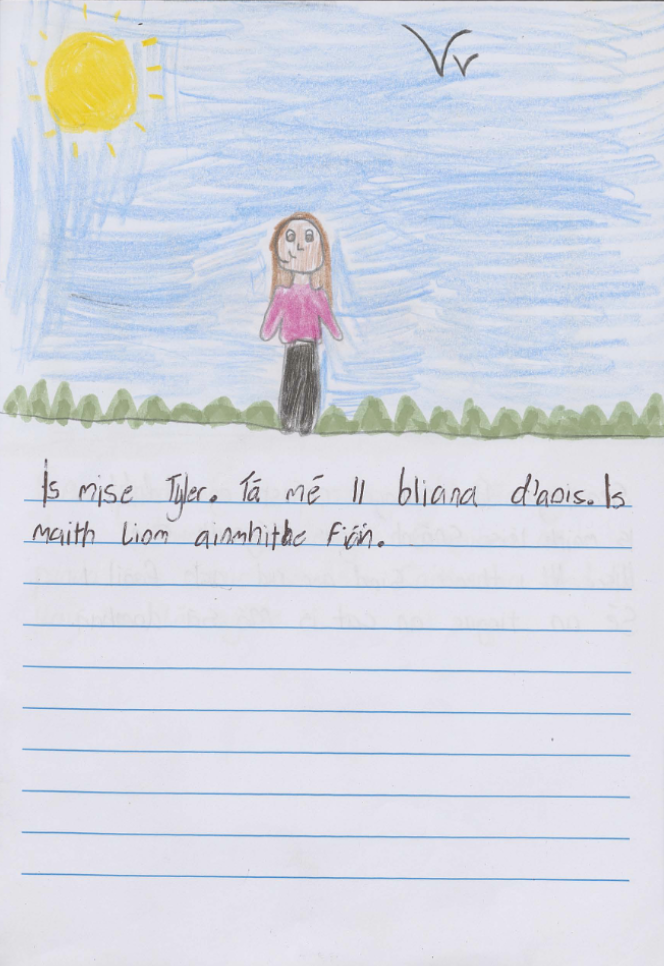 Is mise Tyler. Tá mé 11 bliana d'aois. Is
maith Liom ainmhithe Fiáin.